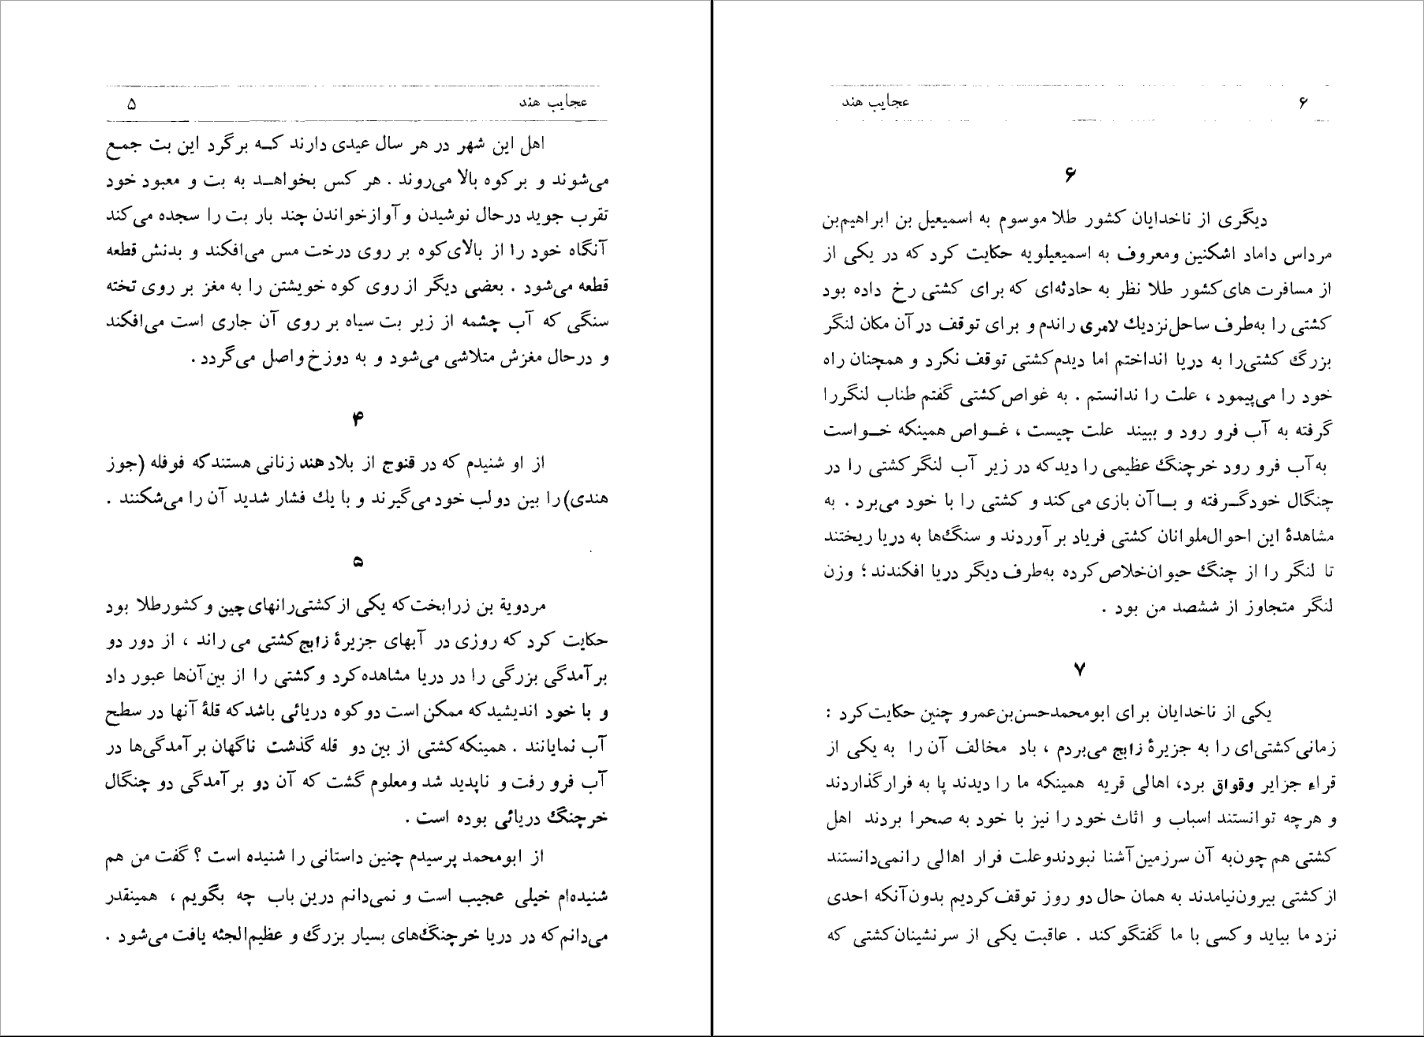 عجایب هند ۵
اهل این شهر در هر سال عیدی دارند کـه برگرد این بت جمع
می‌شوند و برکوه بالا می‌روند . هر کس بخواهـد به بت و معبود خود
تقرب جوید درحال نوشیدن و آوازخواندن چند بار بت را سجده می‌کند
آنگاه خود را از بالای‌کوه بر روی درخت مس می‌افکند و بدنش قطعه
قطعه می‌شود . بعضی دیگر از روی کوه خویشتن را به مغز بر روی تخته
سنگی که آب چشمه از زیر بت سیاه بر روی آن جاری است می‌افکند
و درحال مغزش متلاشی می‌شود و به دوزخ واصل می‌گردد .
۴
از او شنیدم که در قنوج از بلاد هند زنانی هستندکه فوفله (جوز
هندی) را بین دولب خود می‌گیرند و با یك فشار شدید آن را می‌شکنند .
۵
مردویة بن زرابخت‌که یکی از کشتی‌رانهای چین و کشورطلا بود
حکایت کرد که روزی در آبهای جزیرهٔ زابج کشتی می راند ، از دور دو
برآمدگی بزرگی را در دریا مشاهده‌کرد و کشتی را از بین‌آن‌ها عبور داد
و با خود اندیشیدکه ممکن است دو کوه دریائی باشدکه قلهٔ آنها در سطح
آب نمایانند . همینکه کشتی از بین دو قله گذشت ناگهان برآمدگی‌ها در
آب فرو رفت و ناپدید شد ومعلوم گشت که آن دو برآمدگی دو چنگال
خرچنگ دریائی بوده است .
از ابومحمد پرسیدم چنین داستانی را شنیده است ؟ گفت من هم
شنیده‌ام خیلی عجیب است و نمی‌دانم درین باب چه بگویم ، همینقدر
می‌دانم‌که در دریا خرچنگ‌های بسیار بزرگ و عظیم‌الجثه یافت می‌شود .
۶ عجایب هند
۶
دیگری از ناخدایان کشور طلا موسوم به اسمیعیل بن ابراهیم‌بن
مرداس داماد اشکنین ومعروف به اسمیعیلویه حکایت کرد که در یکی از
از مسافرت های‌کشور طلا نظر به حادثه‌ای که برای کشتی رخ داده بود
کشتی را به‌طرف ساحل‌نزدیك لامری راندم و برای توقف در آن مکان لنگر
بزرگ کشتی‌را به دریا انداختم اما دیدم‌کشتی توقف نکرد و همچنان راه
خود را می‌پیمود ، علت را ندانستم . به غواص‌کشتی گفتم طناب لنگررا
گرفته به آب فرو رود و ببیند علت چیست ، غـواص همینکه خـواست
به‌آب فرو رود خرچنگ عظیمی را دیدکه در زیر آب لنگر کشتی را در
چنگال خودگـرفته و بـاآن بازی می‌کند و کشتی را با خود می‌برد . به
مشاهدهٔ این احوال‌ملوانان کشتی فریاد بر آوردند و سنگ‌ها به دریا ریختند
تا لنگر را از چنگ حیوان‌خلاص‌کرده به‌طرف دیگر دریا افکندند ؛ وزن
لنگر متجاوز از ششصد من بود .
۷
یکی از ناخدایان برای ابومحمدحسن‌بن‌عمرو چنین حکایت‌کرد :
زمانی‌کشتی‌ای را به جزیرهٔ زابج می‌بردم ، باد مخالف آن را به یکی از
قراء جزایر وقواق برد، اهالی قریه همینکه ما را دیدند پا به فرارگذاردند
و هرچه توانستند اسباب و اثاث خود را نیز با خود به صحرا بردند اهل
کشتی هم چون‌به آن سرزمین‌آشنا نبودندوعلت فرار اهالی رانمی‌دانستند
از کشتی بیرون‌نیامدند به همان حال دو روز توقف‌کردیم بدون‌آنکه احدی
نزد ما بیاید و کسی با ما گفتگو کند . عاقبت یکی از سرنشینان‌کشتی که